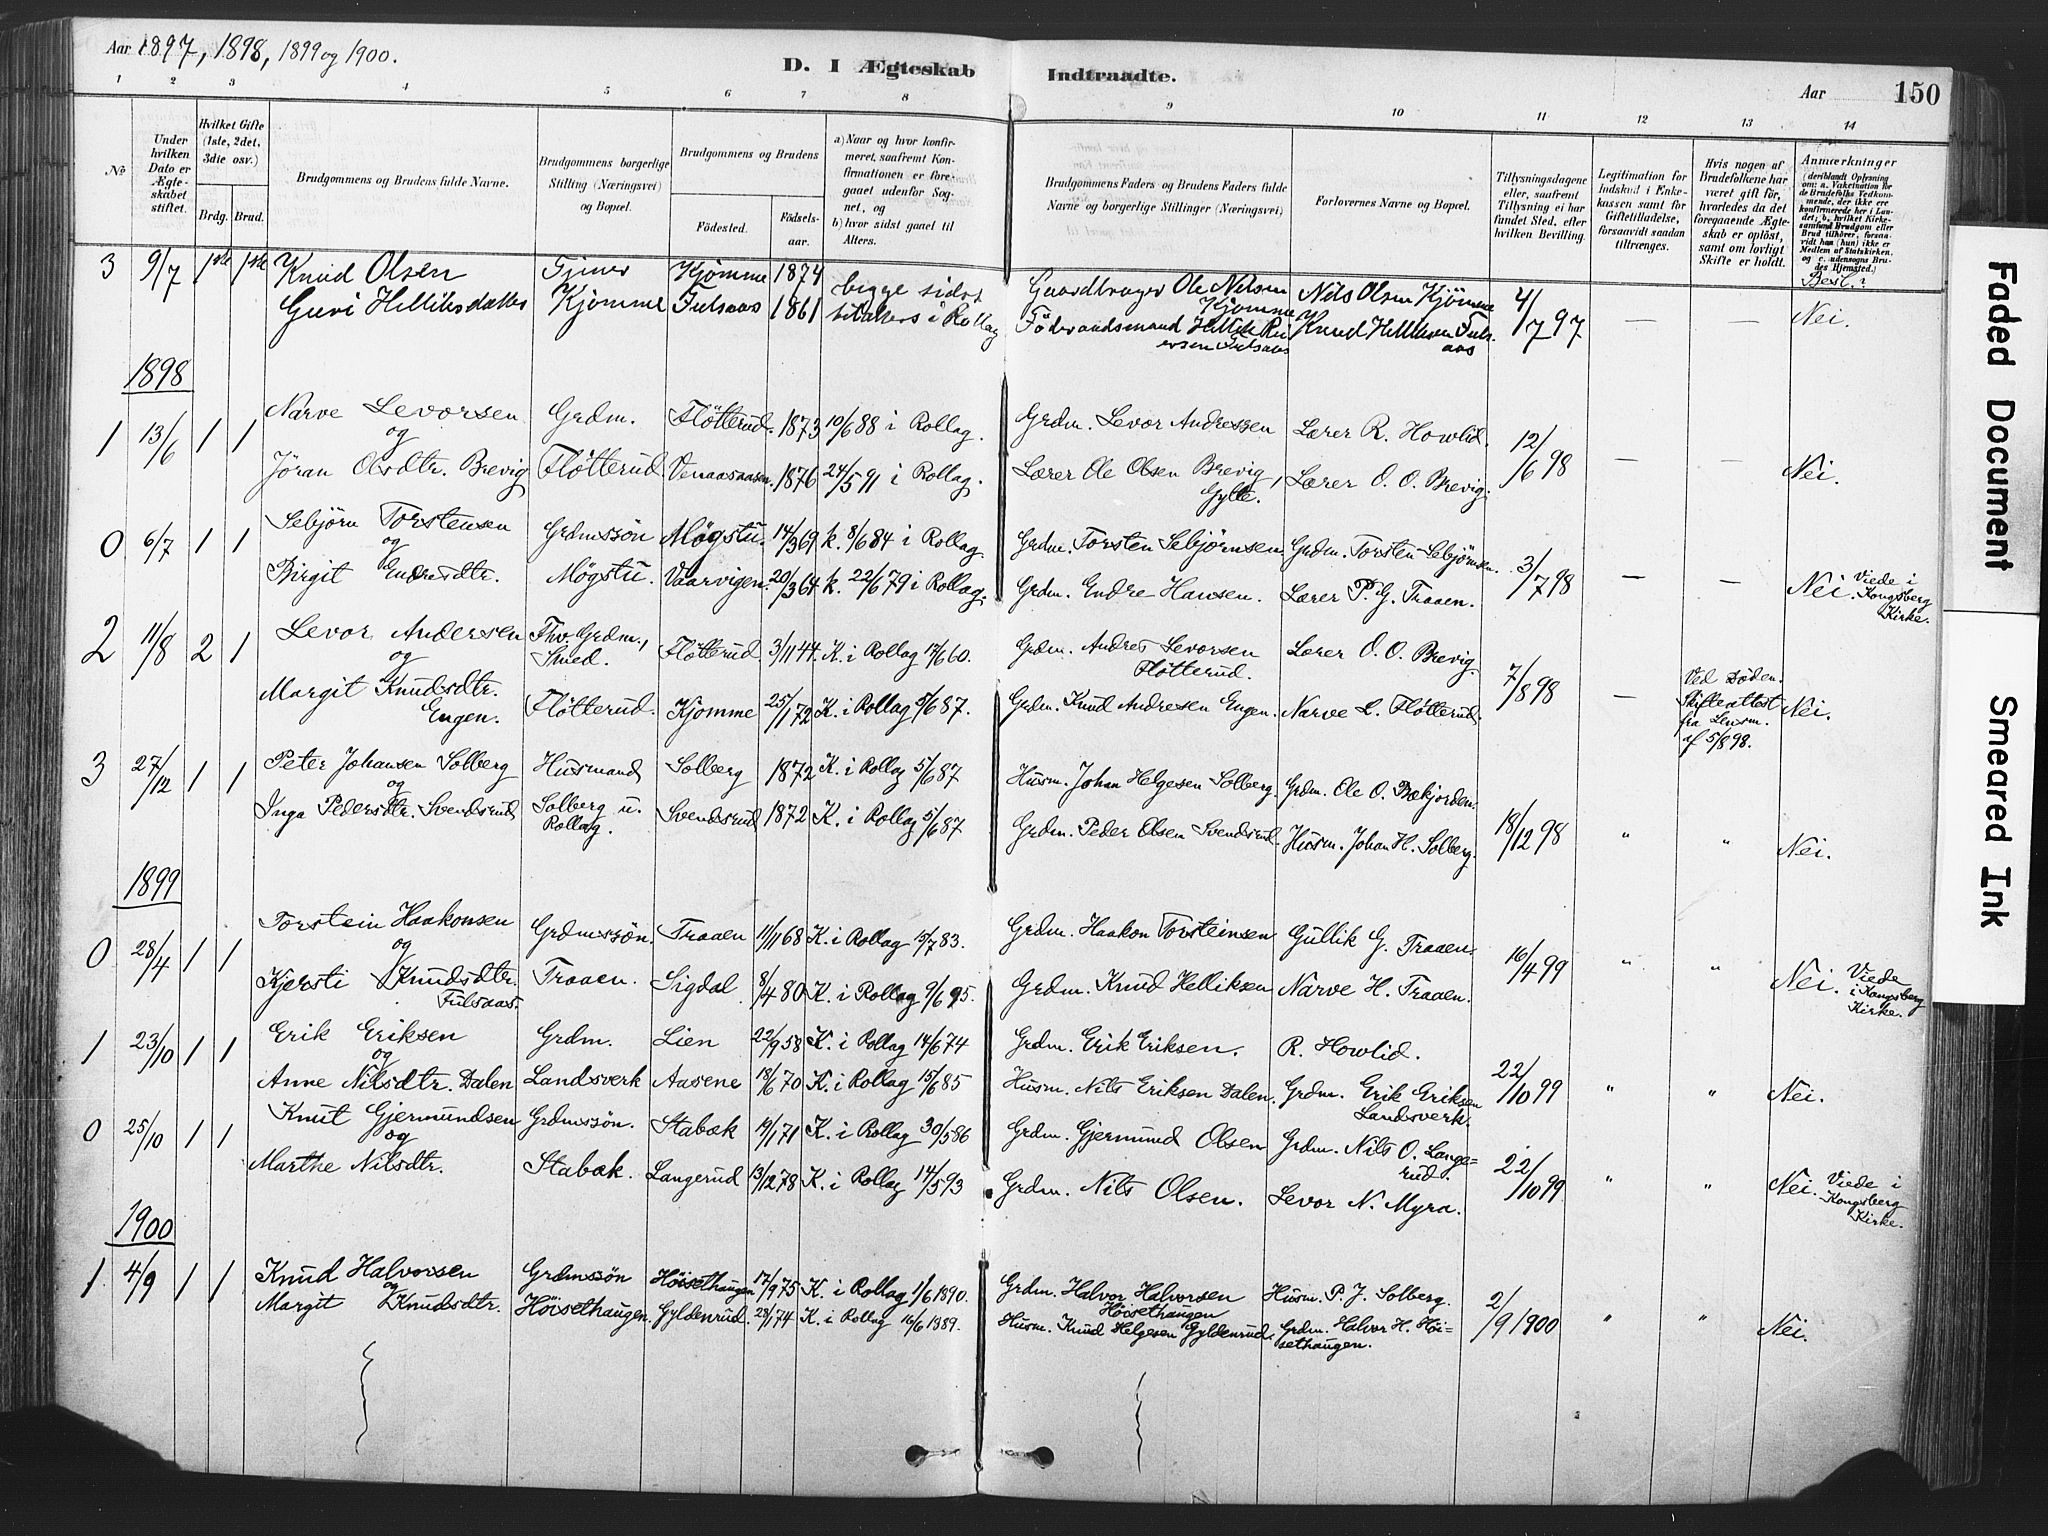 Aar 1897, 1898, 1899 og 1900.
D. I Ægteskab Indtraadte.
Aar 150
1 2 3 4 5 6 7 8 9 10 11 12 13 14
No
Under hvilken Dato er Ægteskabet stiftet.
Hvilket Gifte (1ste, 2det, 3die osv.)
Brdg. Brud.
Brudgommens og Brudens fulde Navne.
Brudgommens borgerlige Stilling (Næringsvei) og Bopæl.
Brudgommens og Brudens
Fødested. Fødselsaar.
a) Naar og hvor konfirmeret, saafremt Konfirmationen er foregaaet udenfor Sognet, og
b) hvor sidst gaaet til Alters.
Brudgommens Faders og Brudens Faders fulde Navne og borgerlige Stillinger (Næringsvei)
Forlovernes Navne og Bopæl.
Tillysningsdagene eller, saafremt Tillysning ei har fundet Sted, efter hvilken Bevilling.
Legitimation for Indskud i Enkekassen samt for Giftetilladelse, forsaavidt saadan tiltrænges.
Hvis nogen af Brudefolkene har været gift før, hvorledes da det foregaaende Ægteskab er opløst, samt om lovligt Skifte er holdt.
Anmærkninger (deriblandt Oplysning om: a. Vakcination for de Brudefolks Vedkommende, der ikke ere konfirmerede her i Landet; b. hvilket Kirkesamfund Brudgom eller Brud tilhører, forsaavidt han (hun) ikke er Medlem af Statskirken, og c. udensogns Brudes Hjemsted.)
Besl.?
3 9/7 1ste 1ste Knud Olsen Tjener Kjømme 1874 begge sidst Gaardbruger Ole Nilsen Kjømme Nils Olsen Kjømme 4/7 97 — — Nei.
Guri Helliksdatter Kjømme Fulsaas 1861 til alters i Rollag Föderaadsmand Hellik Fulsaas Knud Helliksen Fulsaas
1898
1 13/6 1 1 Narve Levorsen Grdm. Fløtterud. 1873 10/6 88 i Rollag. Grdm. Levor Andressen Lærer R. Howlid. 12/6 98 — — Nei.
og
Jöran Olsdtr. Brevig Fløtterud. 1876 24/5 91 i Rollag. Lærer Ole Olsen Brevig, Gylte. Lærer O. O. Brevig.
0 6/7 1 1 Sebjørn Torstensen Grdmssön Møgstu. 14/3 69 k. 8/6 84 i Rollag. Grdm. Torsten Sebjørnsen Grdm. Torsten Sebjørnsen. 3/7 98 — — Nei. Viede i Kongsberg Kirke.
og
Birgit Endresdtr. Møgstu. Vaarvigen. 20/3 64 k. 22/6 79 i Rollag. Grdm. Endre Hansen. Lærer P. G. Traaen.
2 11/8 2 1 Levor Andersen Fhv. Grdm., Smed. Fløtterud. 3/11 44. K. i Rollag 17/6 60. Grdm. Andres Levorsen Fløtterud. Lærer O. O. Brevig. 7/8 98 — Ved Døden. Skifteattest fra Lensm. af 5/8 98. Nei.
og
Margit Knudsdtr. Engen. Fløtterud. Kjømme 25/1 72 K. i Rollag 5/6 87. Grdm. Knud Andresen Engen. Narve L. Fløtterud.
3 27/12 1 1 Peter Johansen Solberg Husmand Solberg 1872 K. i Rollag 5/6 87 Husm. Johan Helgesen Solberg. Grdm. Ole O. Bækjorden. 18/12 98 " " Nei.
og
Inga Pedersdtr. Svendsrud Solberg u. Rollag. Svendsrud 1872 K. i Rollag 5/6 87 Grdm. Peder Olsen Svendsrud. Husm. Johan H. Solberg.
1899
0 28/4 1 1 Torstein Haakonsen Grdmssön. Traaen 11/11 68 K. i Rollag 15/7 83. Grdm. Haakon Torsteinsen Gullik G. Traaen. 16/4 99 " " Nei. Viede i Kongsberg Kirke.
og
Kjersti Knudsdtr. Fulsaas. Traaen. Sigdal 8/4 80 K. i Rollag 9/6 95. Grdm. Knud Helliksen Narve H. Traaen.
1 23/10 1 1 Erik Eriksen Grdm. Lien 22/9 58 K. i Rollag 14/6 74 Grdm. Erik Eriksen. R. Howlid. 22/10 99 " " Nei.
og
Anne Nilsdtr. Dalen Landsverk Aasene 18/6 70 K. i Rollag 15/6 85 Husm. Nils Eriksen Dalen. Grdm. Erik Eriksen Landsverk.
0 25/10 1 1 Knut Gjermundsen Grdmssön. Stabæk 19/1 71 K. i Rollag 30/5 86 Grdm. Gjermund Olsen Grdm. Nils O. Langerud. 22/10 99 " " Nei. Viede i Kongsberg Kirke.
og
Marthe Nilsdtr. Stabæk. Langerud 13/12 78 K. i Rollag 14/5 93 Grdm. Nils Olsen. Levor N. Myra.
1900
1 4/9 1 1 Knud Halvorsen Grdmssön Höisethaugen 17/9 75 K. i Rollag 1/6 1890. Grdm. Halvor Halvorsen Höisethaugen Husm. P. J. Solberg. 2/9 1900 " " Nei.
og
Margit Knudsdtr. Höisethaugen. Gyldenrud. 28/1 74 K. i Rollag 16/6 1889. Husm. Knud Helgesen Gyldenrud. Grdm. Halvor H. Höisethaugen.
Faded Document
Smeared Ink